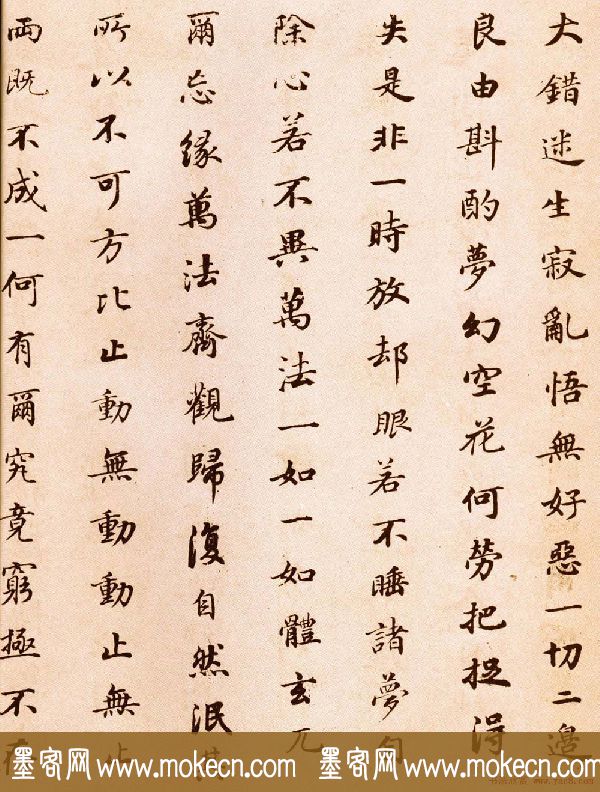 大錯迷生寂亂悟無好惡一切二邊
良由斟酌夢幻空花何勞把捉得
失是非一時放却眼若不睡諸夢自
除心若不異萬法一如一如體玄兀
爾忘緣萬法齊觀歸復自然泯其
所以不可方比止動無動動止無止
兩既不成一何有爾究竟窮極不存
墨客网 www.mokecn.com 墨客网 www.mokecn.com